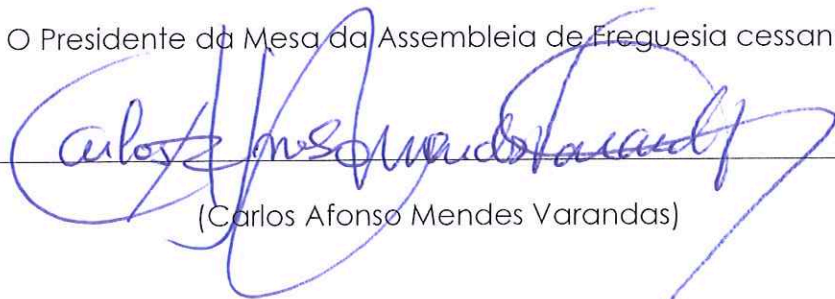 O Presidente da Mesa da Assembleia de Freguesia cessan
Carlos Afonso Mendes Varandas
(Carlos Afonso Mendes Varandas)